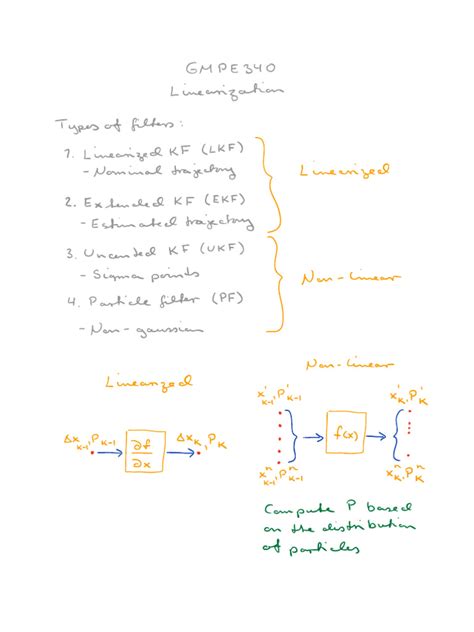 GMPE340
Linearization
Types of filters:
1. Linearized KF (LKF)
- Nominal trajectory
Linearized
2. Extended KF (EKF)
- Estimated trajectory
3. Uncented KF (UKF)
- Sigma points
Non-linear
4. Particle filter (PF)
- Non-gaussian
Linearized
Non-linear
Δx_{k-1}, P_{k-1} → ∂f/∂x → Δx_k, P_k
x'_{k-1}, P'_{k-1} x'_k, P'_k
f(x)
x^n_{k-1}, P^n_{k-1} x^n_k, P^n_k
Compute P based
on the distribution
of particles